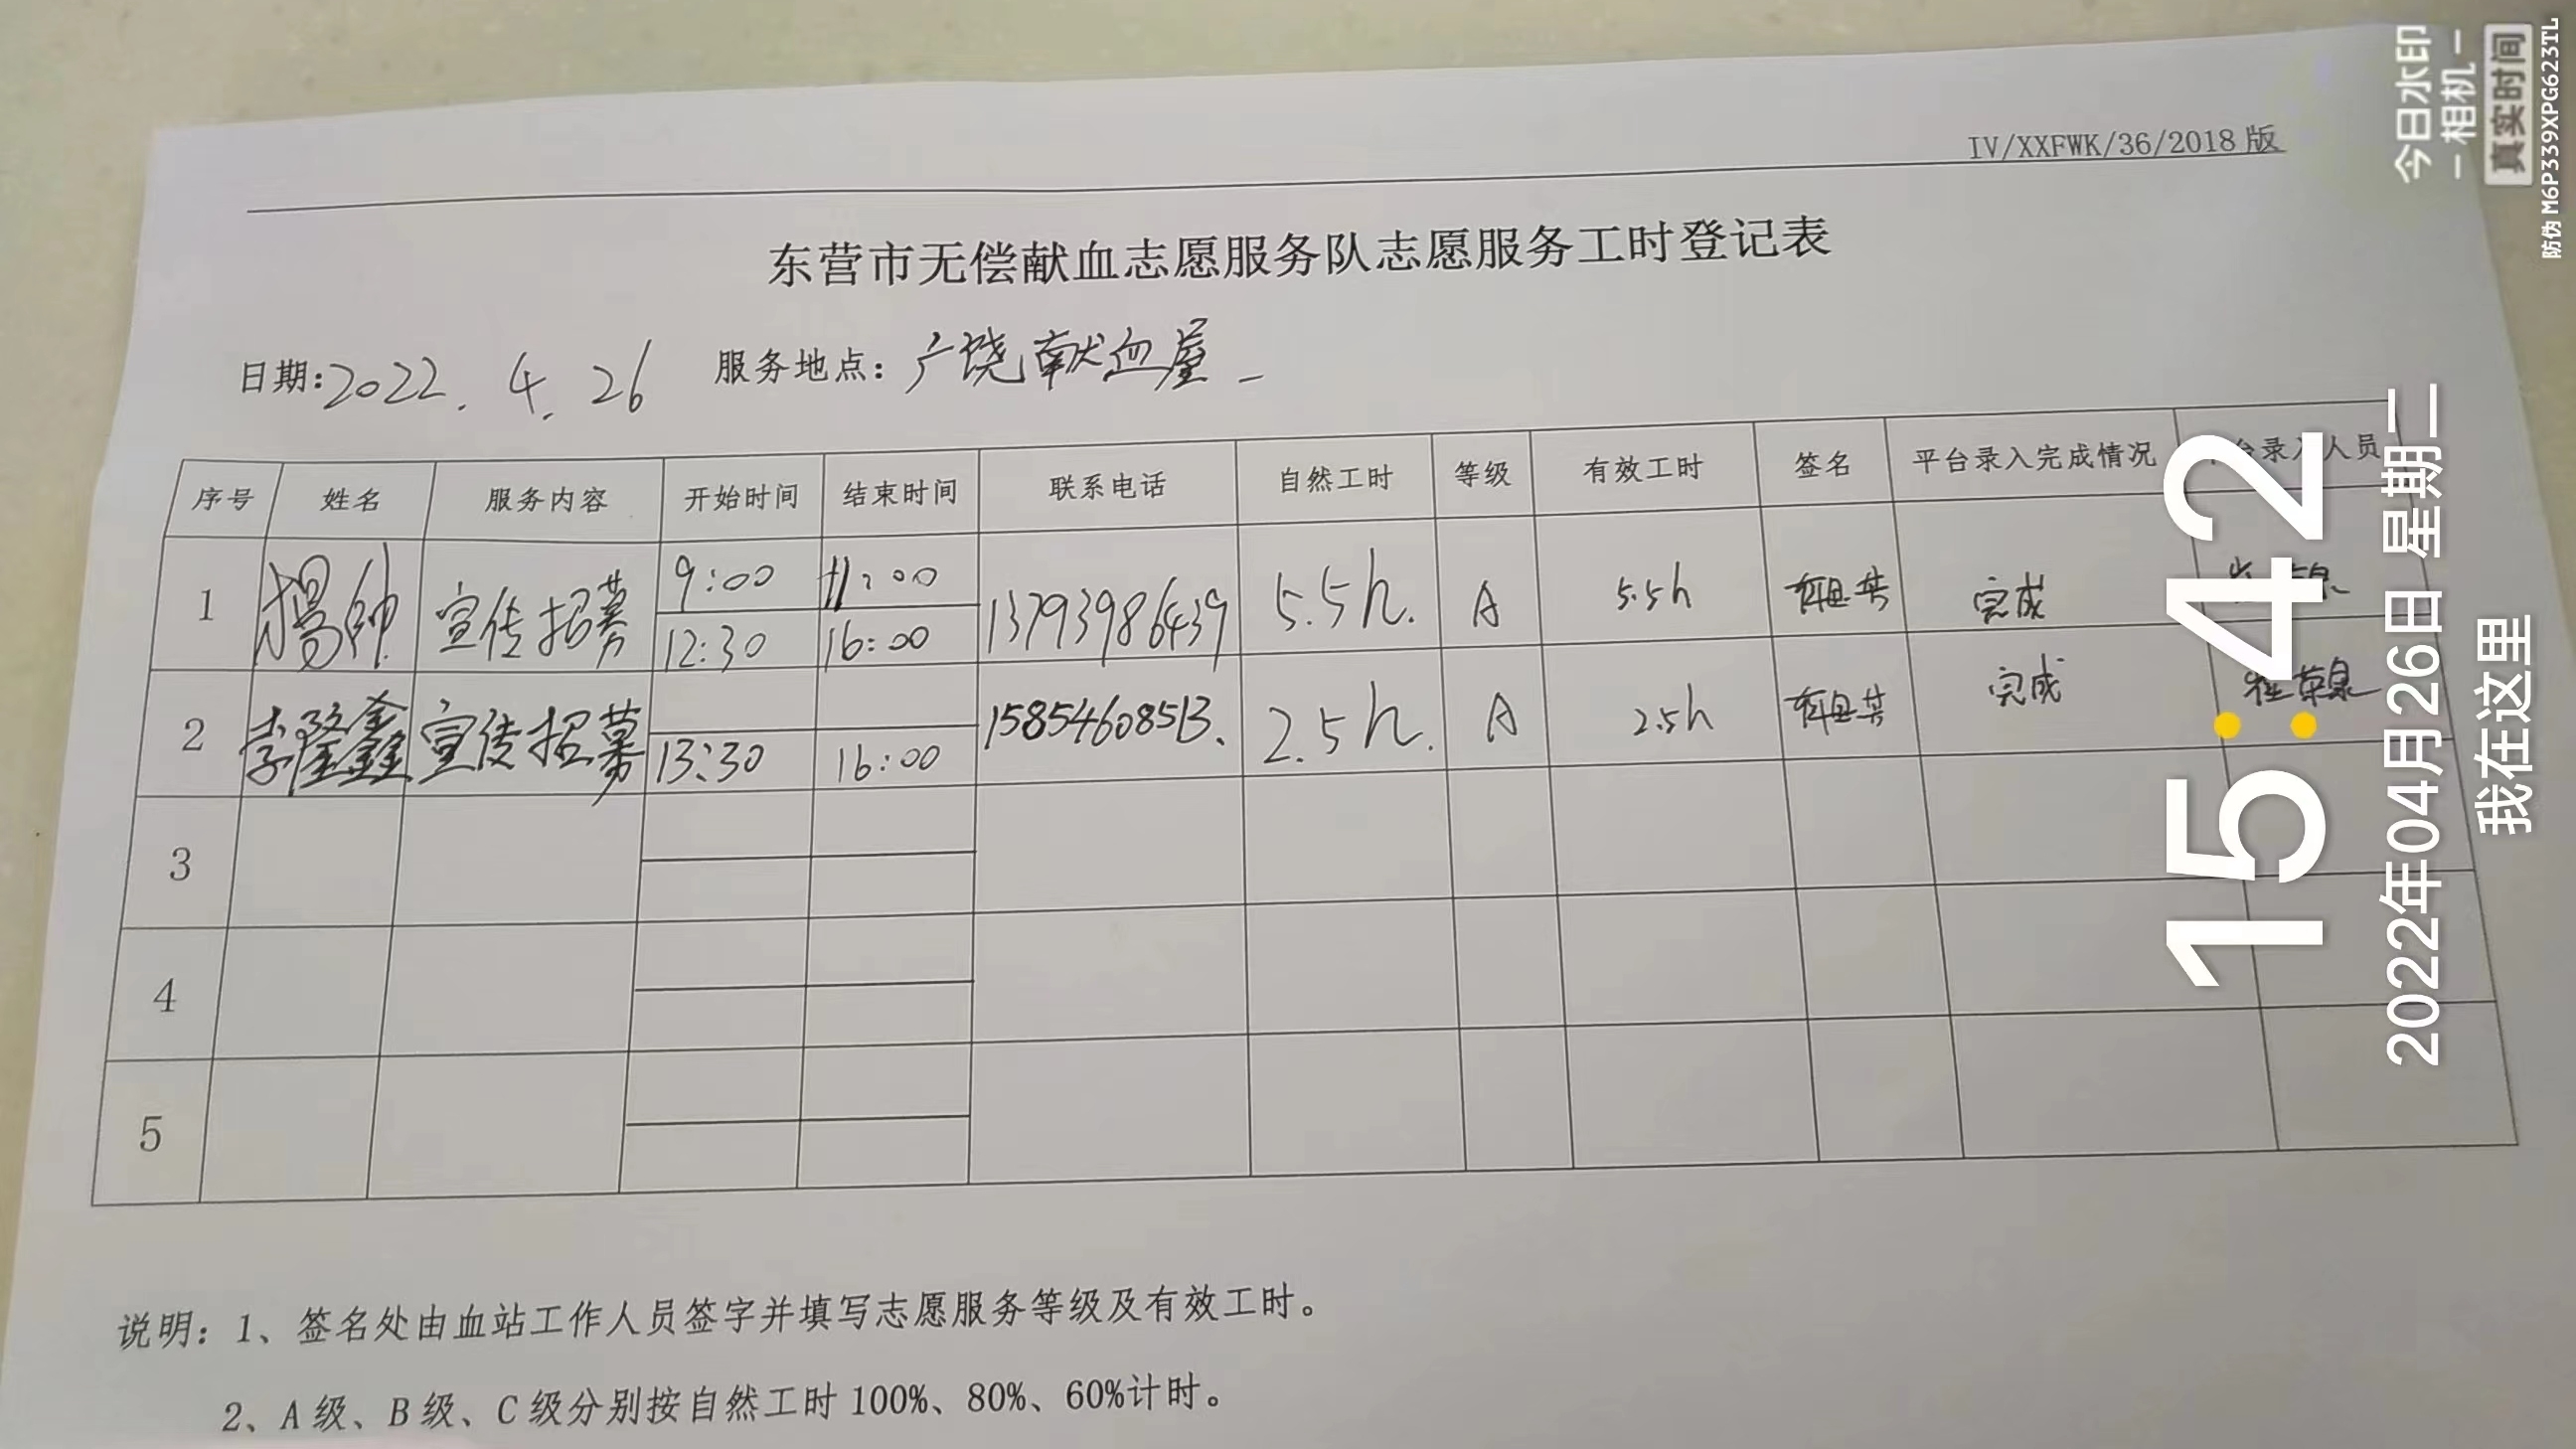 IV/XXFWK/36/2018 版
东营市无偿献血志愿服务队志愿服务工时登记表
日期:2022.4.26 服务地点:广饶献血屋
序号 姓名 服务内容 开始时间 结束时间 联系电话 自然工时 等级 有效工时 签名 平台录入完成情况 台录入人员
1 杨帅 宣传招募 9:00 11:00 13793986439 5.5h. A 5.5h 完成
12:30 16:00
2 李隆鑫 宣传招募 15854608513. 2.5h. A 2.5h 完成
13:30 16:00
3
4
5
说明:1、签名处由血站工作人员签字并填写志愿服务等级及有效工时。
2、A级、B级、C级分别按自然工时100%、80%、60%计时。
15:42
2022年04月26日 星期二
我在这里
今日水印
-相机-
真实时间
防伪 M6P339XPG623TL